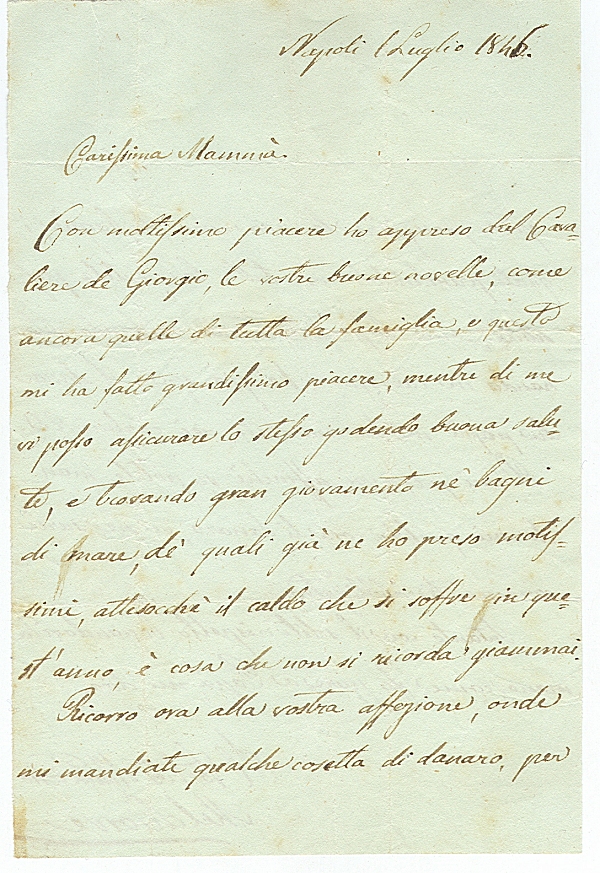 Napoli 1 Luglio 1846.
Carissima Mammà.
Con moltissimo piacere ho appreso dal Cava-
liere de Giorgio, le vostre buone novelle, come
ancora quelle di tutta la famiglia, e questo
mi ha fatto grandissimo piacere, mentre di me
vi posso assicurare lo stesso godendo buona salu-
te, e trovando gran giovamento nè bagni
di mare, dè quali già ne ho preso motis-
simi, attesocchè il caldo che si soffre in que-
st'anno, è cosa che non si ricorda giammai.
Ricorro ora alla vostra affezione, onde
mi mandiate qualche cosetta di danaro, per